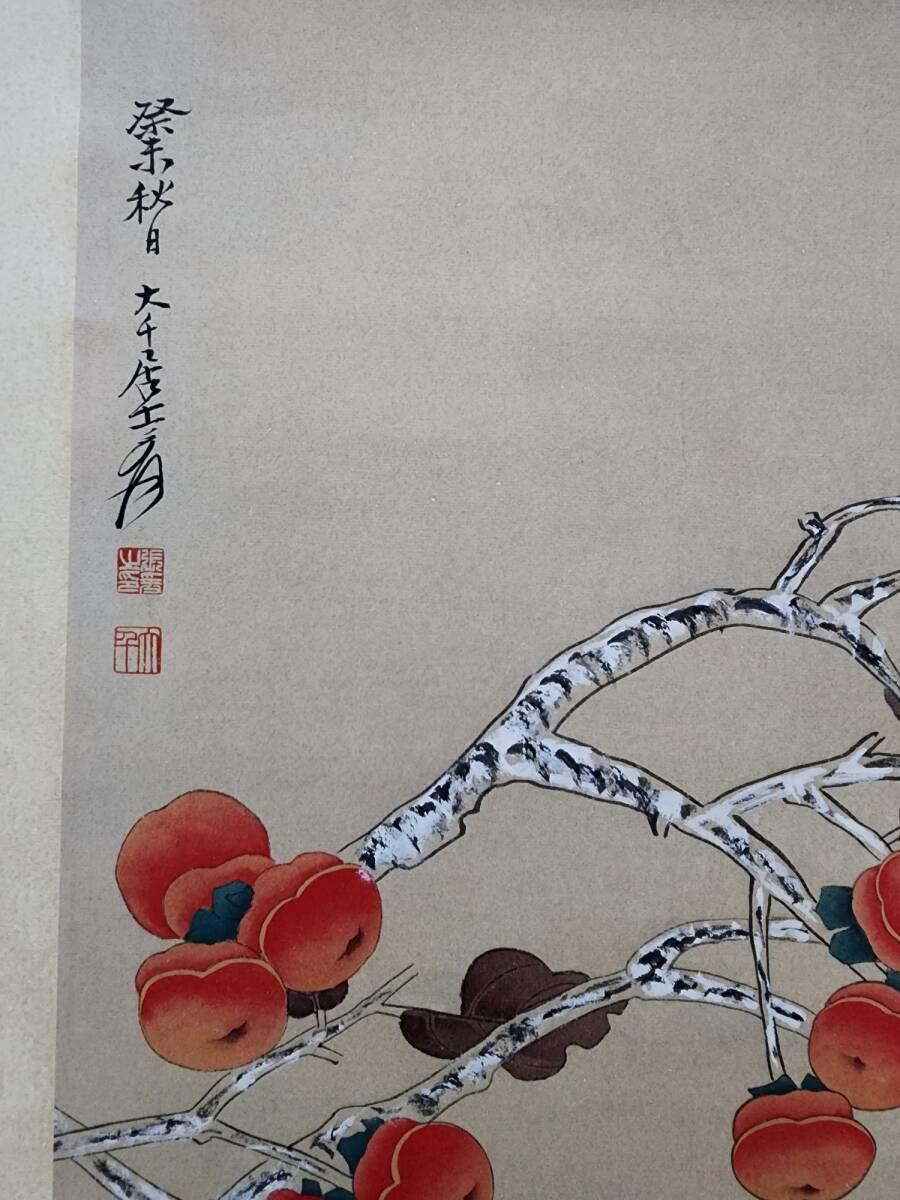 癸未秋日 大千居士爰
張爰之印
大千